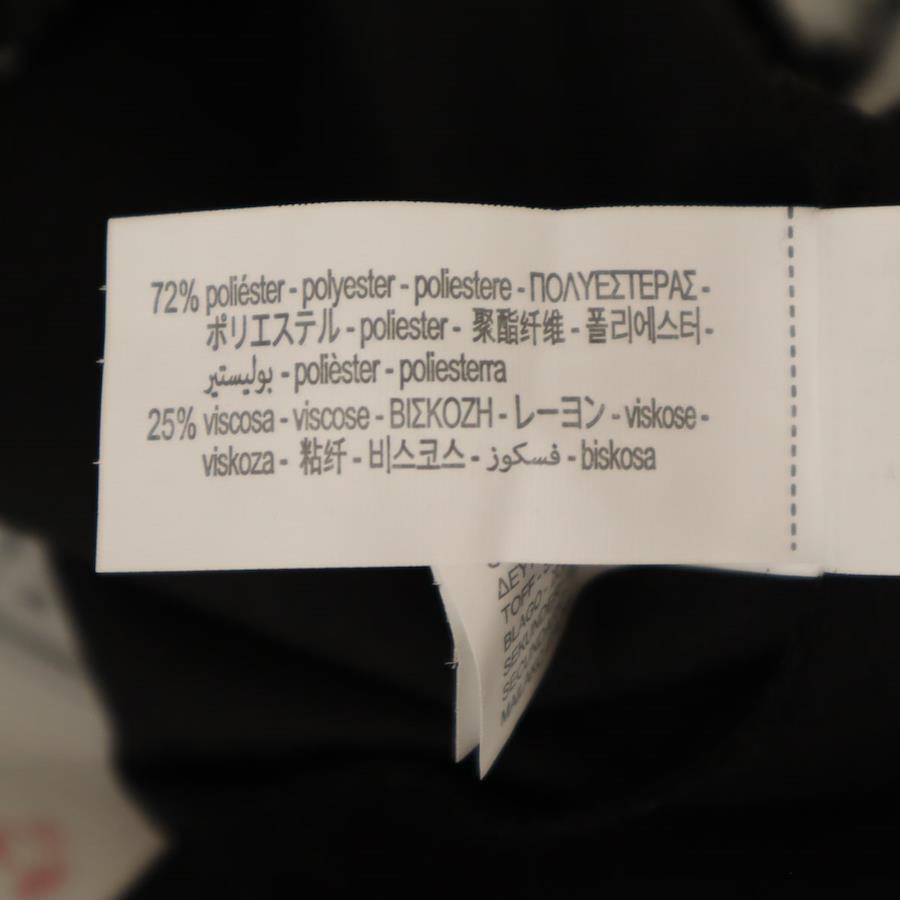 72% poliéster - polyester - poliestere - ΠΟΛΥΕΣΤΕΡΑΣ -
ポリエステル - poliester - 聚酯纤维 - 폴리에스터 -
بوليستير - polièster - poliesterra
25% viscosa - viscose - ΒΙΣΚΟΖΗ - レーヨン - viskose -
viskoza - 粘纤 - 비스코스 - فسكوز - biskosa
TOFF -
BLAGO -